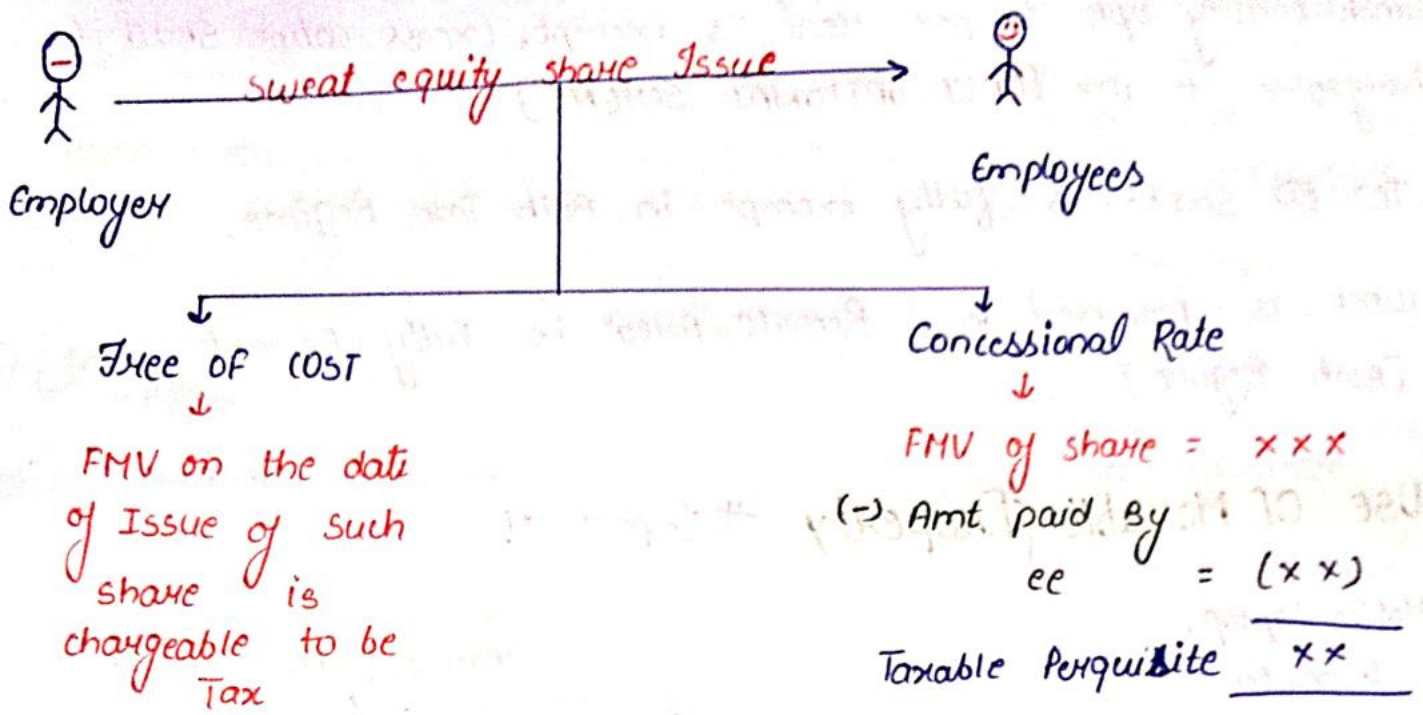 sweat equity share Issue
Employer
Employees
Free OF COST
FMV on the date
of Issue of such
share is
chargeable to be
Tax
Concessional Rate
FMV of share = x x x
(-) Amt. paid By
ee = (x x)
Taxable Perquisite x x